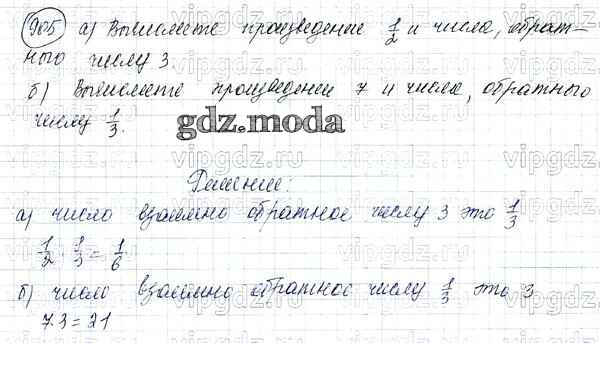 905 а) Вычислите произведение 1/2 и числа, обрат-
ного числу 3
б) Вычислите произведение 7 и числа, обратного
числу 1/3.
gdz.moda
Решение:
а) число взаимно обратное числу 3 это 1/3
1/2 · 1/3 = 1/6
б) число взаимно обратное числу 1/3 это 3
7·3=21
vipgdz.ru